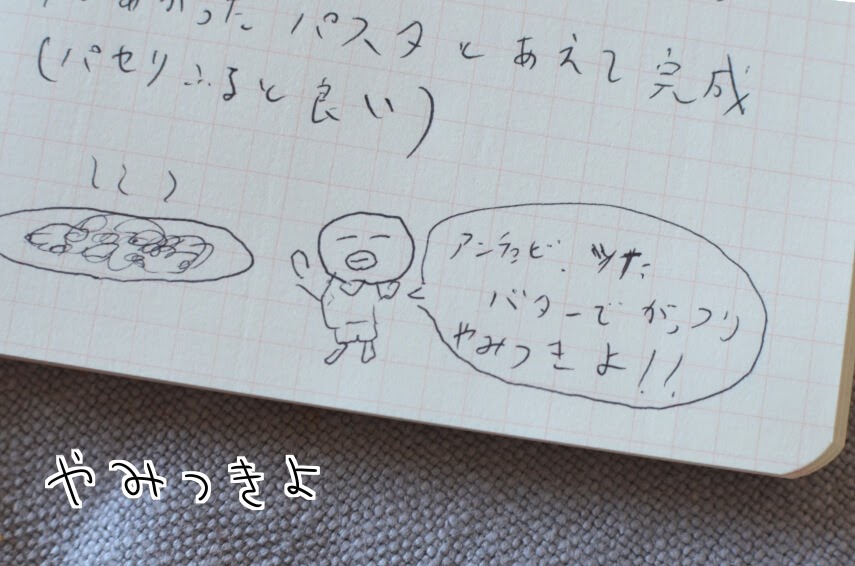 あがった パスタとあえて完成
(パセリふると良い)
アンチョビ、ツナ、
バターでがっつり
やみつきよ!!
やみつきよ